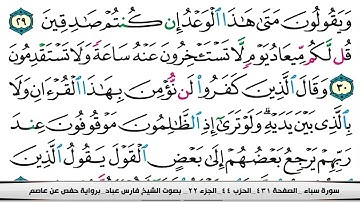 وَيَقُولُونَ مَتَىٰ هَٰذَا الْوَعْدُ إِن كُنتُمْ صَٰدِقِينَ ٢٩
قُل لَّكُم مِّيعَادُ يَوْمٍ لَّا تَسْتَـْٔخِرُونَ عَنْهُ سَاعَةً وَلَا تَسْتَقْدِمُونَ
٣٠ وَقَالَ الَّذِينَ كَفَرُوا لَن نُّؤْمِنَ بِهَٰذَا الْقُرْءَانِ وَلَا
بِالَّذِي بَيْنَ يَدَيْهِ وَلَوْ تَرَىٰ إِذِ الظَّٰلِمُونَ مَوْقُوفُونَ عِندَ
رَبِّهِمْ يَرْجِعُ بَعْضُهُمْ إِلَىٰ بَعْضٍ الْقَوْلَ يَقُولُ الَّذِينَ
سورة سباء _ الصفحة ٤٣١_ الحزب ٤٤_ الجزء ٢٢_ بصوت الشيخ فارس عباد_ برواية حفص عن عاصم